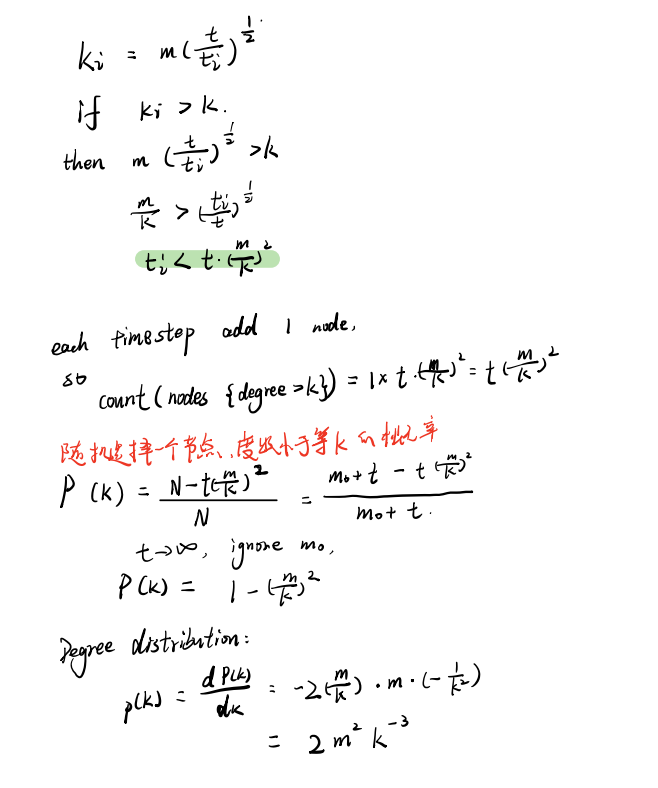 kᵢ = m(t/tᵢ)^½.
if kᵢ > k.
then m (t/tᵢ)^½ > k
m/k > (tᵢ/t)^½
tᵢ < t·(m/k)²
each timestep add 1 node,
so count(nodes {degree>k}) = 1× t·(m/k)² = t(m/k)²
随机选择一个节点、度数小于等k的概率
P(k) = (N-t(m/k)²)/N = (m₀+t - t(m/k)²)/(m₀+t).
t→∞, ignore m₀,
P(k) = 1-(m/k)²
Degree distribution:
p(k) = dP(k)/dk = -2(m/k)·m·(-1/k²)
= 2m²k⁻³